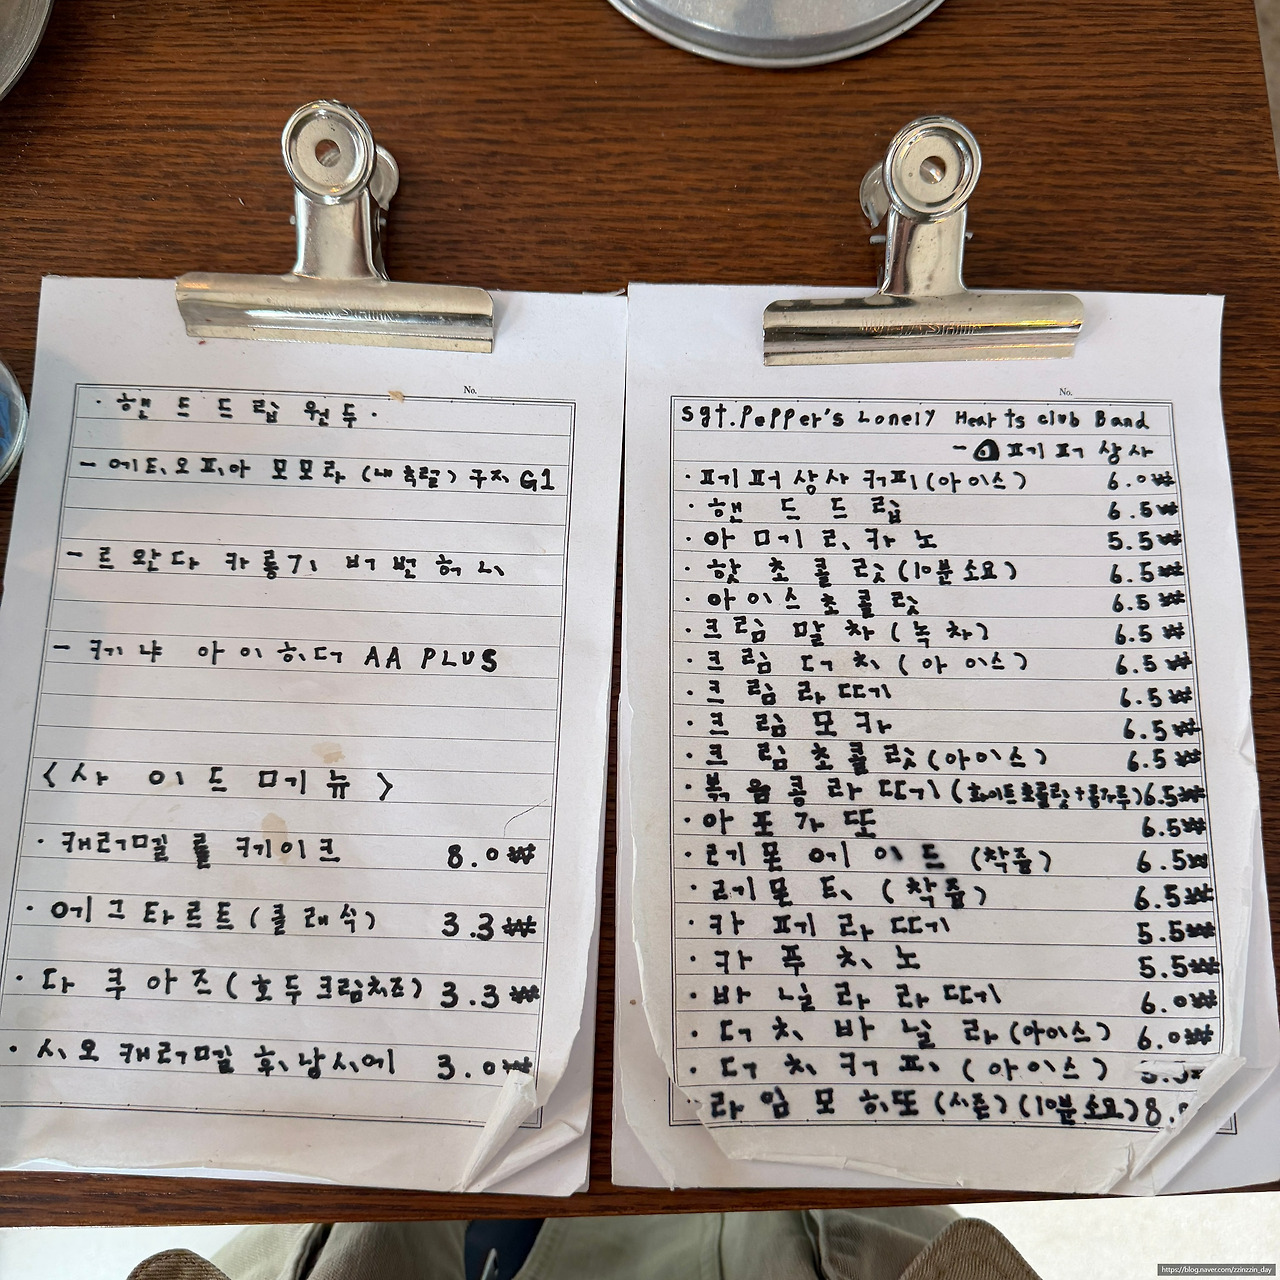 No.
· 핸드드립 원두 ·
- 에티오피아 모모라 (내추럴) 구지 G1
- 르완다 카롱기 버번 허니
- 케냐 아이히더 AA PLUS
<사이드 메뉴>
· 캐러멜 롤 케이크 8.0₩
· 에그타르트 (클래식) 3.3₩
· 다쿠아즈 (호두크림치즈) 3.3₩
· 시오 캐러멜 휘낭시에 3.0₩
No.
Sgt.Pepper's Lonely Hearts club Band
- 페퍼 상사
· 페퍼상사 커피 (아이스) 6.0₩
· 핸드드립 6.5₩
· 아메리카노 5.5₩
· 핫초콜릿 (10분 소요) 6.5₩
· 아이스 초콜릿 6.5₩
· 크림 말차 (녹차) 6.5₩
· 크림 더치 (아이스) 6.5₩
· 크림 라떼 6.5₩
· 크림 모카 6.5₩
· 크림 초콜릿 (아이스) 6.5₩
· 볶음콩 라떼 (화이트초콜릿+콩가루) 6.5₩
· 아포가또 6.5₩
· 레몬에이드 (착즙) 6.5₩
· 레몬티 (착즙) 6.5₩
· 카페라떼 5.5₩
· 카푸치노 5.5₩
· 바닐라 라떼 6.0₩
· 더치 바닐라 (아이스) 6.0₩
· 더치커피 (아이스)
· 라임 모히또 (시즌) (10분 소요) 8.0
https://blog.naver.com/zzinzzin_day